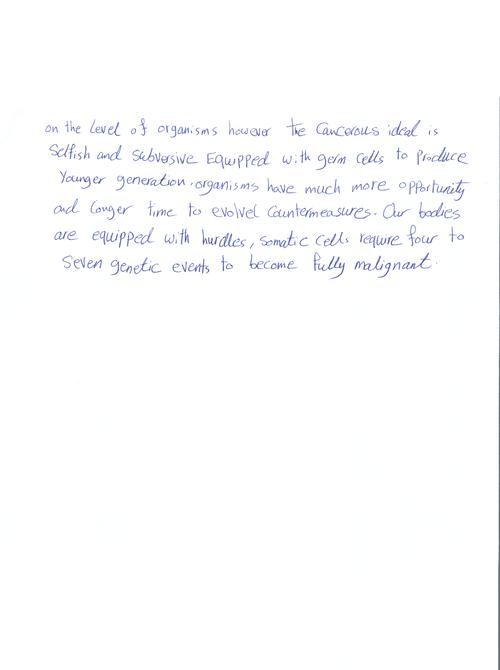 on the level of organisms however the Cancerous ideal is
Selfish and Subversive Equipped with germ Cells to Produce
Younger generation, organisms have much more opportunity
and Longer time to evolvel Countermeasures. Our bodies
are equipped with hurdles, Somatic Cells require four to
Seven genetic events to become fully malignant.